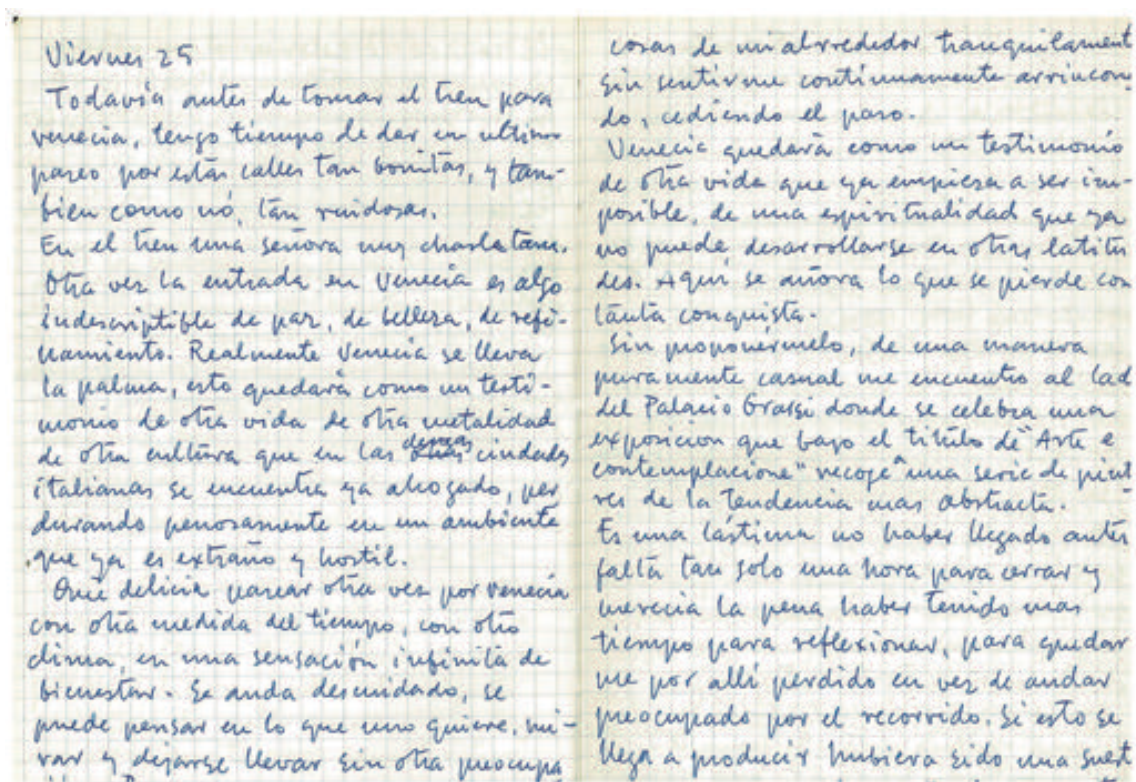 Viernes 25
Todavía antes de tomar el tren para
venecia, tengo tiempo de dar un ultimo
paseo por estas calles tan bonitas, y tam-
bien como nó, tan ruidosas.
En el tren una señora muy charlatana.
Otra vez la entrada en Venecia es algo
indescriptible de paz, de belleza, de refi-
namiento. Realmente Venecia se lleva
la palma, esto quedará como un testi-
monio de otra vida de otra metalidad
de otra cultura que en las demas ciudades
italianas se encuentra ya ahogado, per
durando penosamente en un ambiente
que ya es extraño y hostil.
Que delicia pasear otra vez por venecia
con otra medida del tiempo, con otro
clima, en una sensación infinita de
bienestar. Se anda descuidado, se
puede pensar en lo que uno quiere, mi-
rar y dejarse llevar sin otra preocupa
cosas de mi alrrededor tranquilament
sin sentirme continuamente arrincon
do, cediendo el paso.
Venecia quedará como un testimonio
de otra vida que ya empieza a ser im-
posible, de una espiritualidad que ya
no puede desarrollarse en otras latitu
des. Aqui se añora lo que se pierde con
tanta conquista.
Sin proponérmelo, de una manera
puramente casual me encuentro al lad
del Palacio Grassi donde se celebra una
exposicion que bajo el titulo de "Arte e
contemplacione" recoge una serie de pint
res de la tendencia mas abstracta.
Es una lástima no haber llegado antes
falta tan solo una hora para cerrar y
merecia la pena haber tenido mas
tiempo para reflexionar, para quedar
me por allí perdido en vez de andar
preocupado por el recorrido. Si esto se
llega a producir hubiera sido una suert